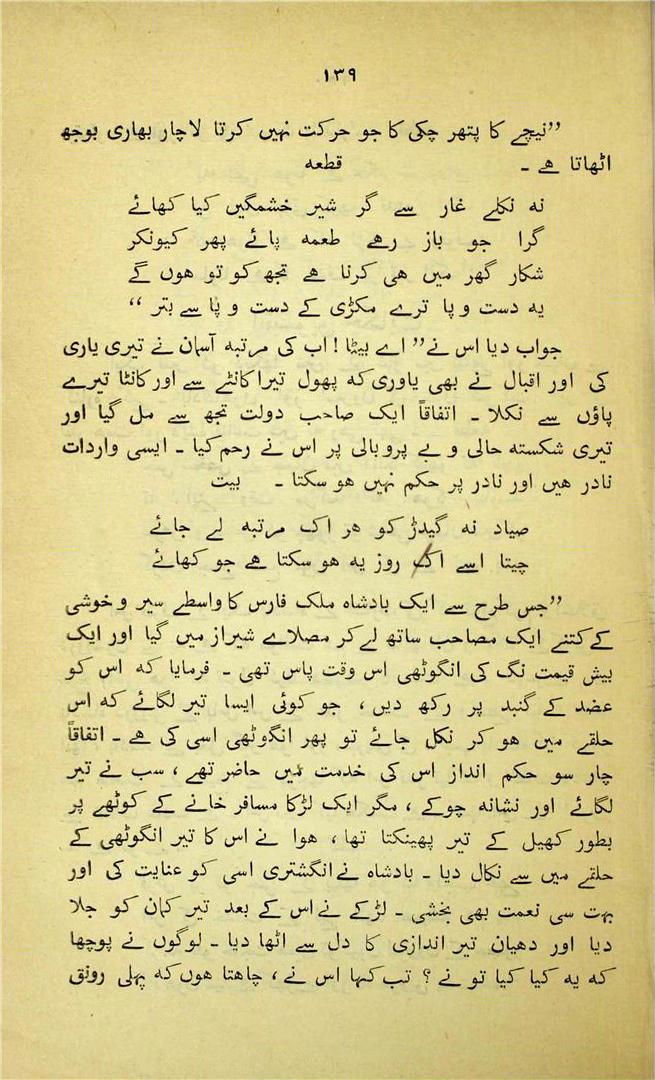 ۱۳۹
”نیچے کا پتھر چکی کا جو حرکت نہیں کرتا لاچار بھاری بوجھ
اٹھاتا ہے ۔ قطعه
نہ نکلے غار سے گر شیر خشمگیں کیا کھائے
گرا جو باز رہے طعمه پائے پھر کیونکر
شکار گھر میں ہی کرنا ہے تجھ کو تو ہوں گے
یه دست و پا ترے مکڑی کے دست و پا سے بتر “
جواب دیا اس نے ” اے بیٹا ! اب کی مرتبه آسمان نے تیری یاری
کی اور اقبال نے بھی یاوری که پھول تیرا کانٹے سے اور کانٹا تیرے
پاؤں سے نکلا ۔ اتفاقاً ایک صاحب دولت تجھ سے مل گیا اور
تیری شکسته حالی و بے پروبالی پر اس نے رحم کیا ۔ ایسی واردات
نادر ہیں اور نادر پر حکم نہیں ہو سکتا ۔ بیت
صیاد نه گیدڑ کو ہر اک مرتبه لے جائے
چیتا اسے اک روز یه ہو سکتا ہے جو کھائے
”جس طرح سے ایک بادشاہ ملک فارس کا واسطے سیر و خوشی
کے کتنے ایک مصاحب ساتھ لے کر مصلاے شیراز میں گیا اور ایک
بیش قیمت نگ کی انگوٹھی اس وقت پاس تھی ۔ فرمایا که اس کو
عضد کے گنبد پر رکھ دیں ، جو کوئی ایسا تیر لگائے که اس
حلقے میں ہو کر نکل جائے تو پھر انگوٹھی اسی کی ہے ۔ اتفاقاً
چار سو حکم انداز اس کی خدمت میں حاضر تھے ، سب نے تیر
لگائے اور نشانه چوکے ، مگر ایک لڑکا مسافر خانے کے کوٹھے پر
بطور کھیل کے تیر پھینکتا تھا ، ہوا نے اس کا تیر انگوٹھی کے
حلقے میں سے نکال دیا ۔ بادشاہ نے انگشتری اسی کو عنایت کی اور
بہت سی نعمت بھی بخشی ۔ لڑکے نے اس کے بعد تیر کمان کو جلا
دیا اور دھیان تیر اندازی کا دل سے اٹھا دیا ۔ لوگوں نے پوچھا
که یه کیا کیا تو نے ؟ تب کہا اس نے ، چاہتا ہوں که پہلی رونق